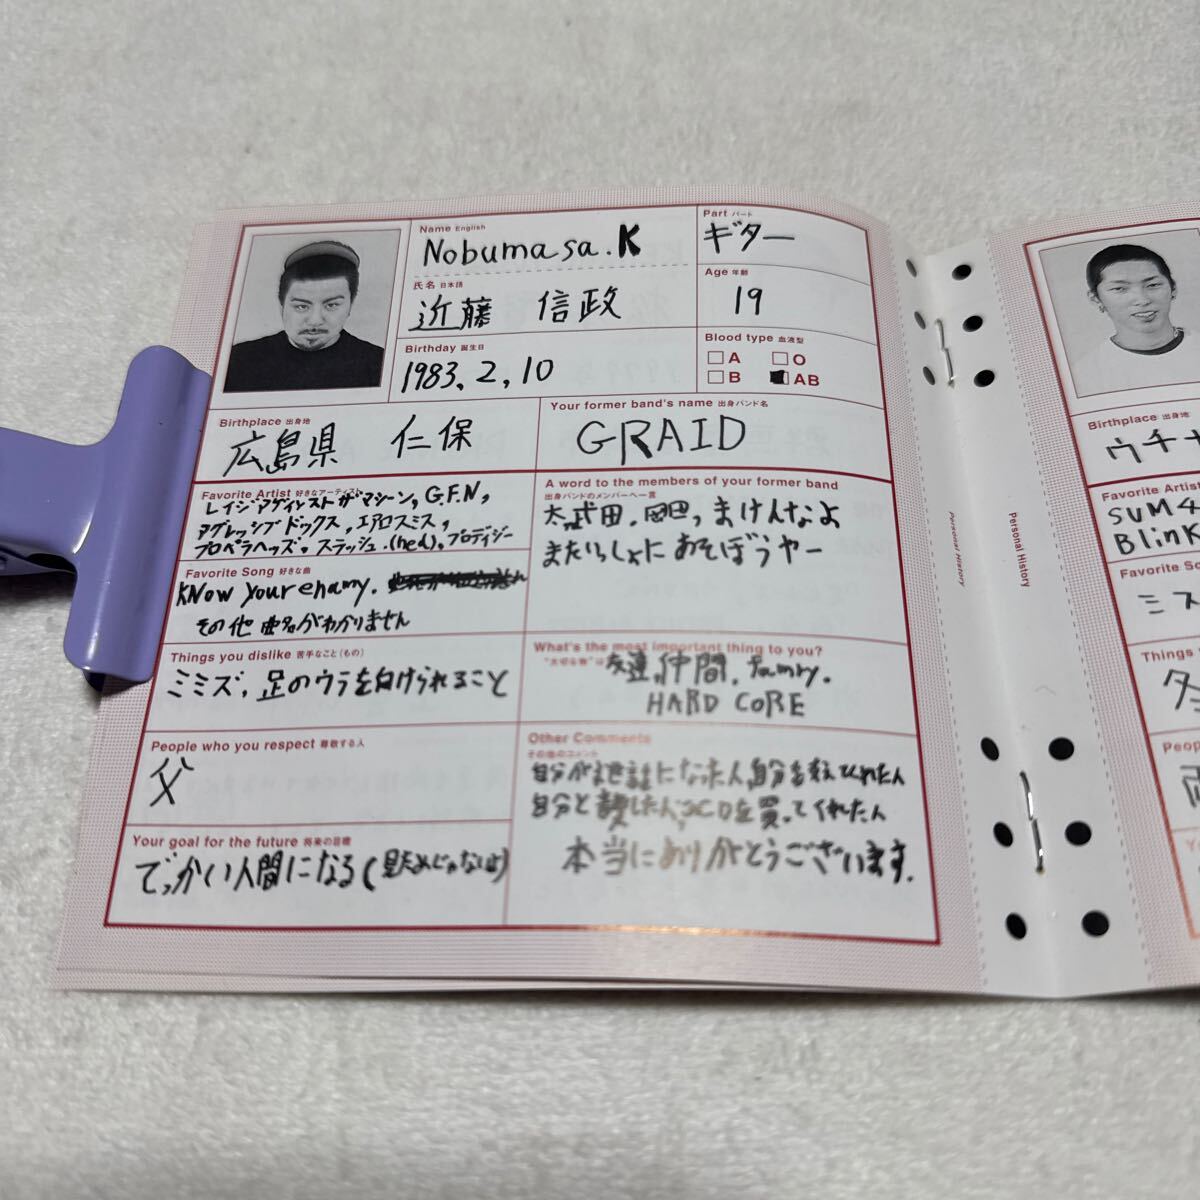 Name English
Nobumasa.K
Part パート
ギター
氏名 日本語
近藤 信政
Age 年齢
19
Birthday 誕生日
1983, 2, 10
Blood type 血液型
A O
B AB
Birthplace 出身地
広島県 仁保
Your former band's name 出身バンド名
GRAID
Favorite Artist 好きなアーティスト
レイジアゲインストザマシーン, G.F.N,
アグレッシブドックス, エアロスミス,
プロペラヘッズ. スラッシュ. (hed). プロディジー
A word to the members of your former band
出身バンドのメンバーへ一言
まけんなよ
またいっしょにあそぼうヤー
Favorite Song 好きな曲
KNow Your enamy.
その他 曲名がわかりません
Things you dislike 苦手なこと(もの)
ミミズ, 足のウラを向けられること
What's the most important thing to you?
"大切な物"は
友達, 仲間, famiry.
HARD CORE
People who you respect 尊敬する人
父
Other Comments
その他のコメント
自分が世話になった人, 自分を支えてくれた人
自分と CDを買ってくれた人
本当にありがとうございます.
Your goal for the future 将来の目標
でっかい人間になる(見ためじゃないよ)
Personal History
Personal History
Birthplace 出身地
ウチナ
Favorite Artist
SUM 4
Blink
Favorite So
ミス
Things
冬
Peop
両
Yo